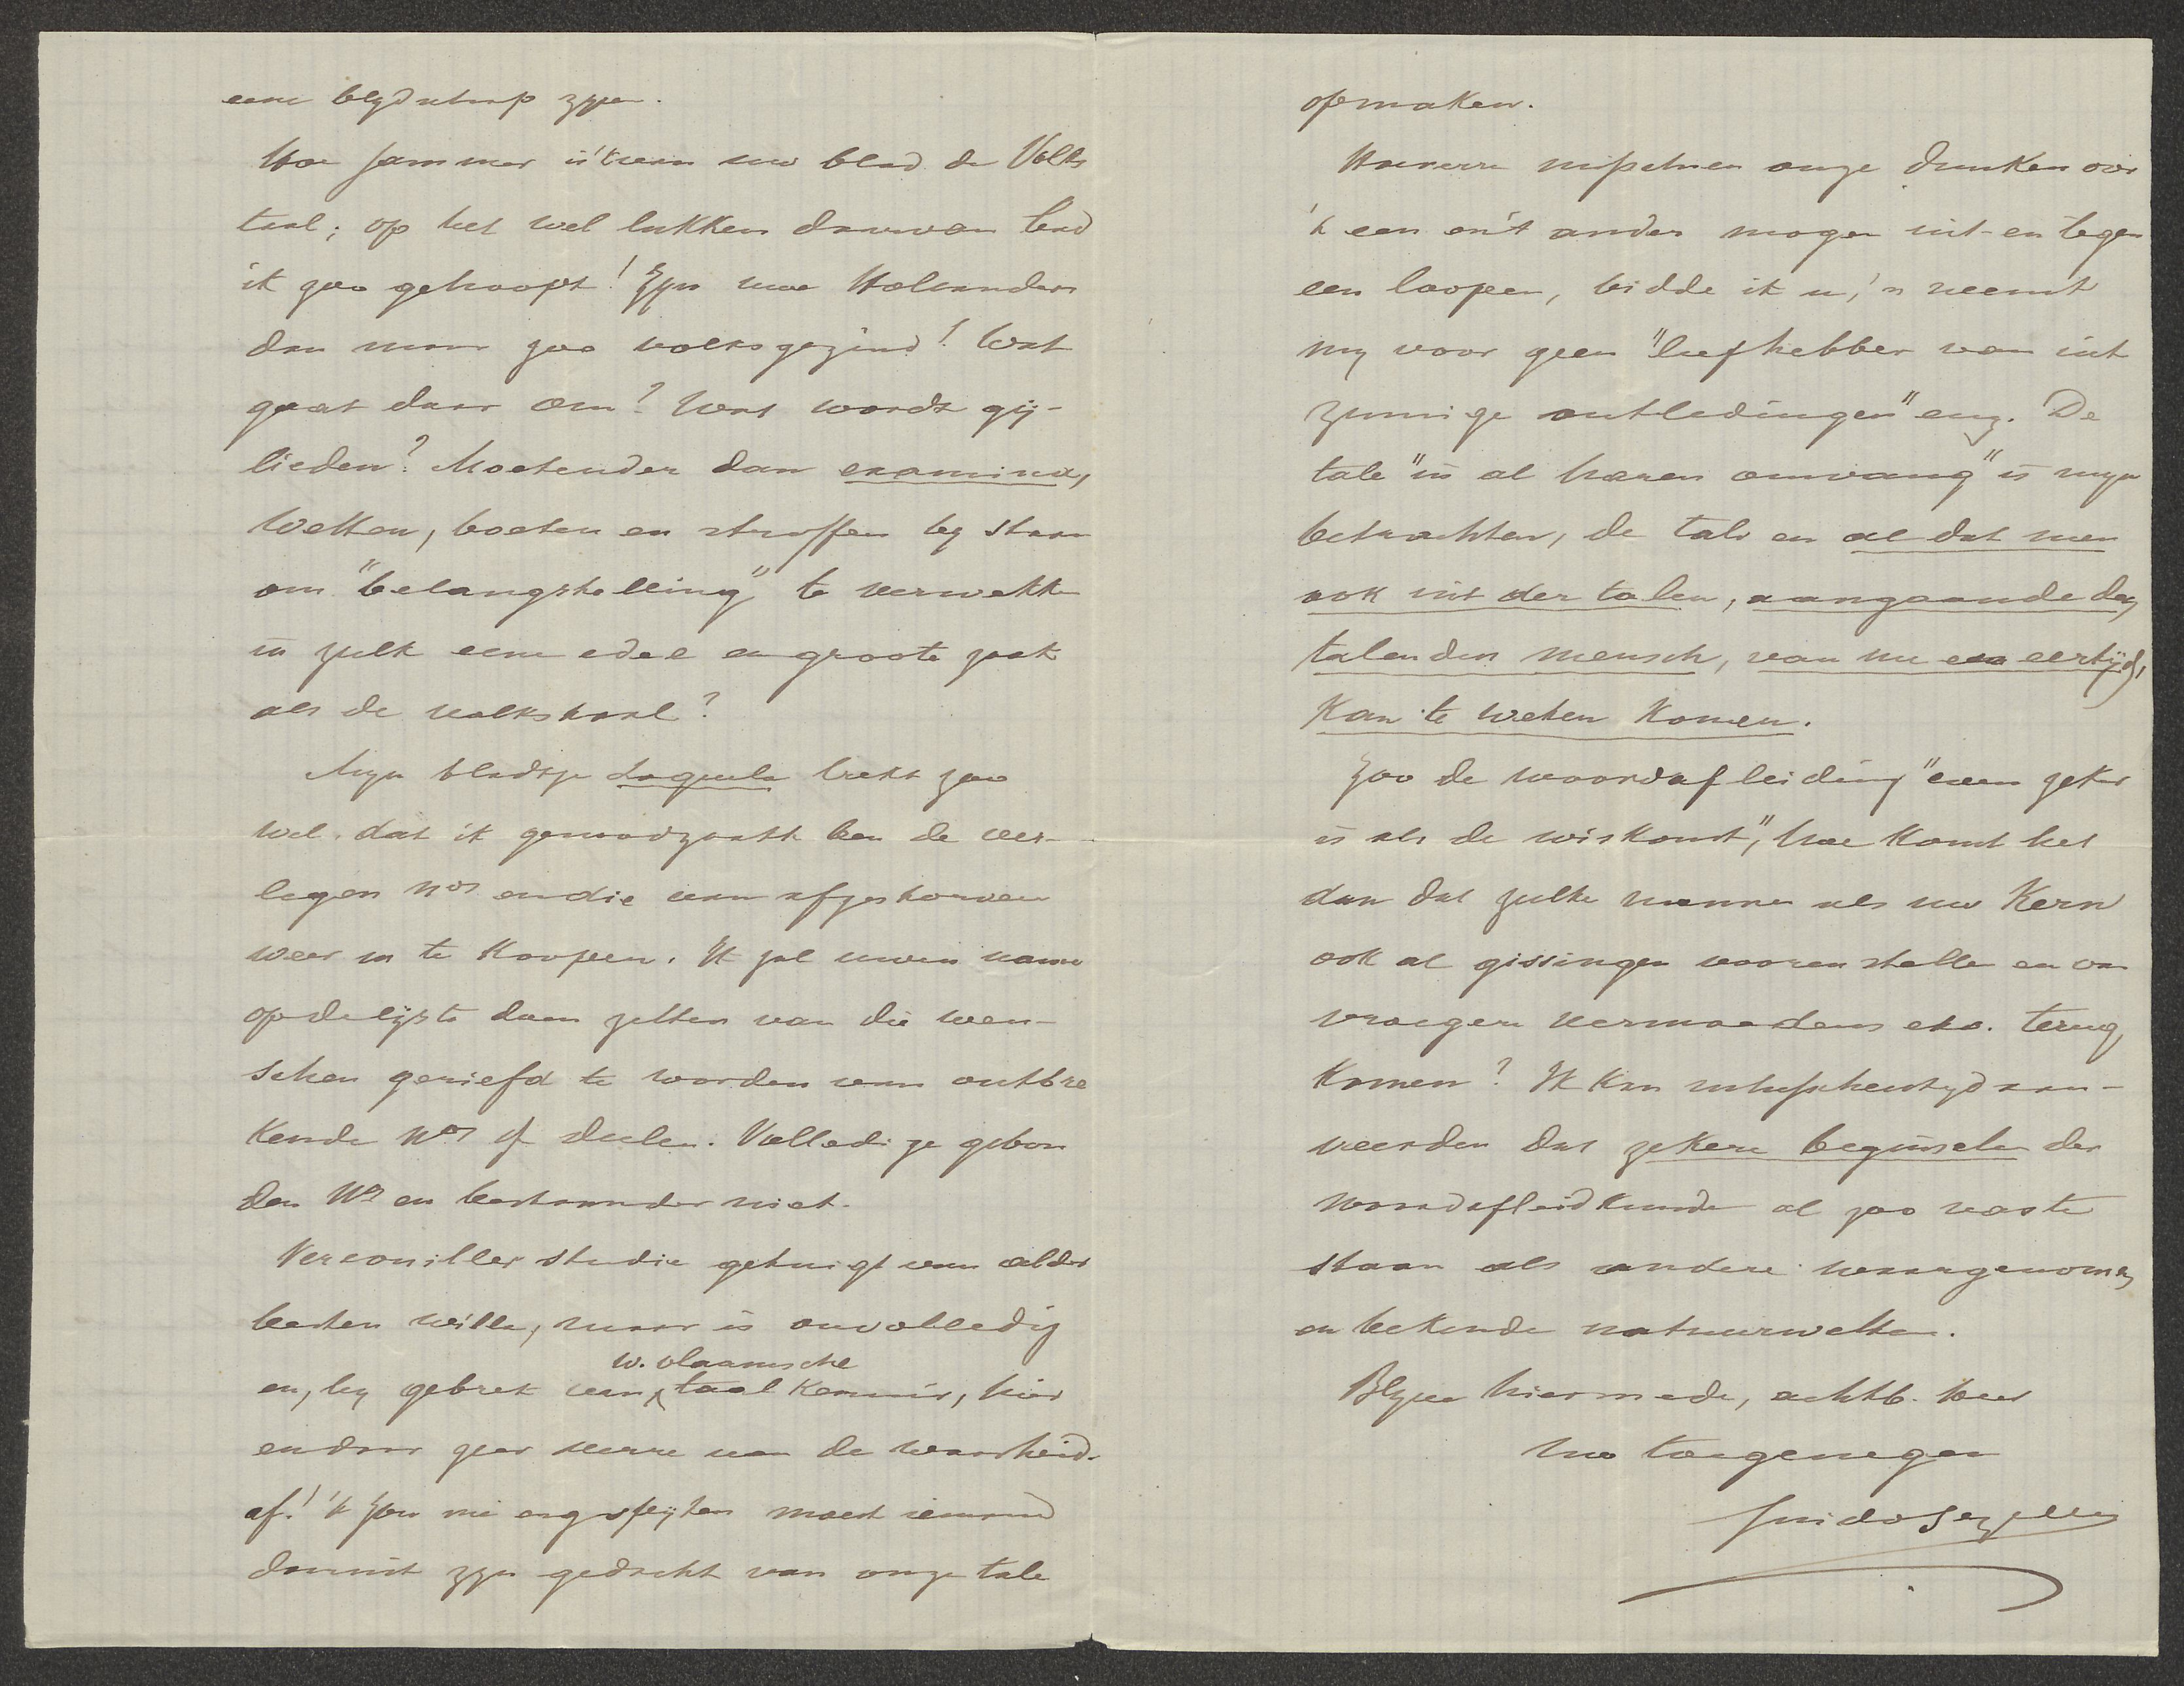 eene blydschap zyn.
Hoe jammer is 't van uw blad de Volks
taal; op het wel lukken daarvan had
ik zoo gehoopt! Zyn uwe Hollanders
dan maar zoo volksgezind! Wat
gaat daar om? Wat wordt gij-
lieden? Moetender dan examina,
Wetten, boeten en straffen by staan
om "belangstelling" te verwekken
in zulk eene edele en groote zaak
als de volkstaal?
Myn bladtje Loquela trekt zoo
wel dat ik genoodzaakt ben de ver-
legen nos en die van afgestorven
weer in te koopen. Ik zal uwen name
op de lijste doen zetten van die wen-
schen geriefd te worden van ontbre
kende Nos of deelen. Volledige gebon
den Nos en bestaander niet.
Vercouillies studie getuigt van alder
besten wille, maar is onvolledig
w. vlaamsche
en, by gebrek van taalkennis, hier
en daar zeer verre van de waarheid
af! 't Zou mi erg spijten moest iemand
daeruit zyn gedacht van onze tale
opmaken.
Hoeverre misschien onze dunken over
't een en 't ander mogen uit- en tegen
een loopen, bidde ik u, 'n neemt
my voor geen "liefhebber van uit
zinnige ontledingen" enz. De
tale "in al haren omvang" is myn
betrachten, de tale en al dat men
ook uit der talen, aangaande den
talenden mensch, van nu en eertijds,
Kan te weten komen.
Zoo de woordafleiding "even zeker
is als de wiskonst", hoe komt het
dan dat zulke mannen als uw Kern
ook al gissingen vooren stellen en van
vroegere vermoedens eks. terug
komen? Ik kan intusschentyd aan-
veerden dat zekere beginselen der
woordafleidkunde al zoo vaste
staan als andere waargenomen
en bekende natuurwetten.
Blyve hiermede, achtb. heer
Uw toegenegen
Guido Gezelle